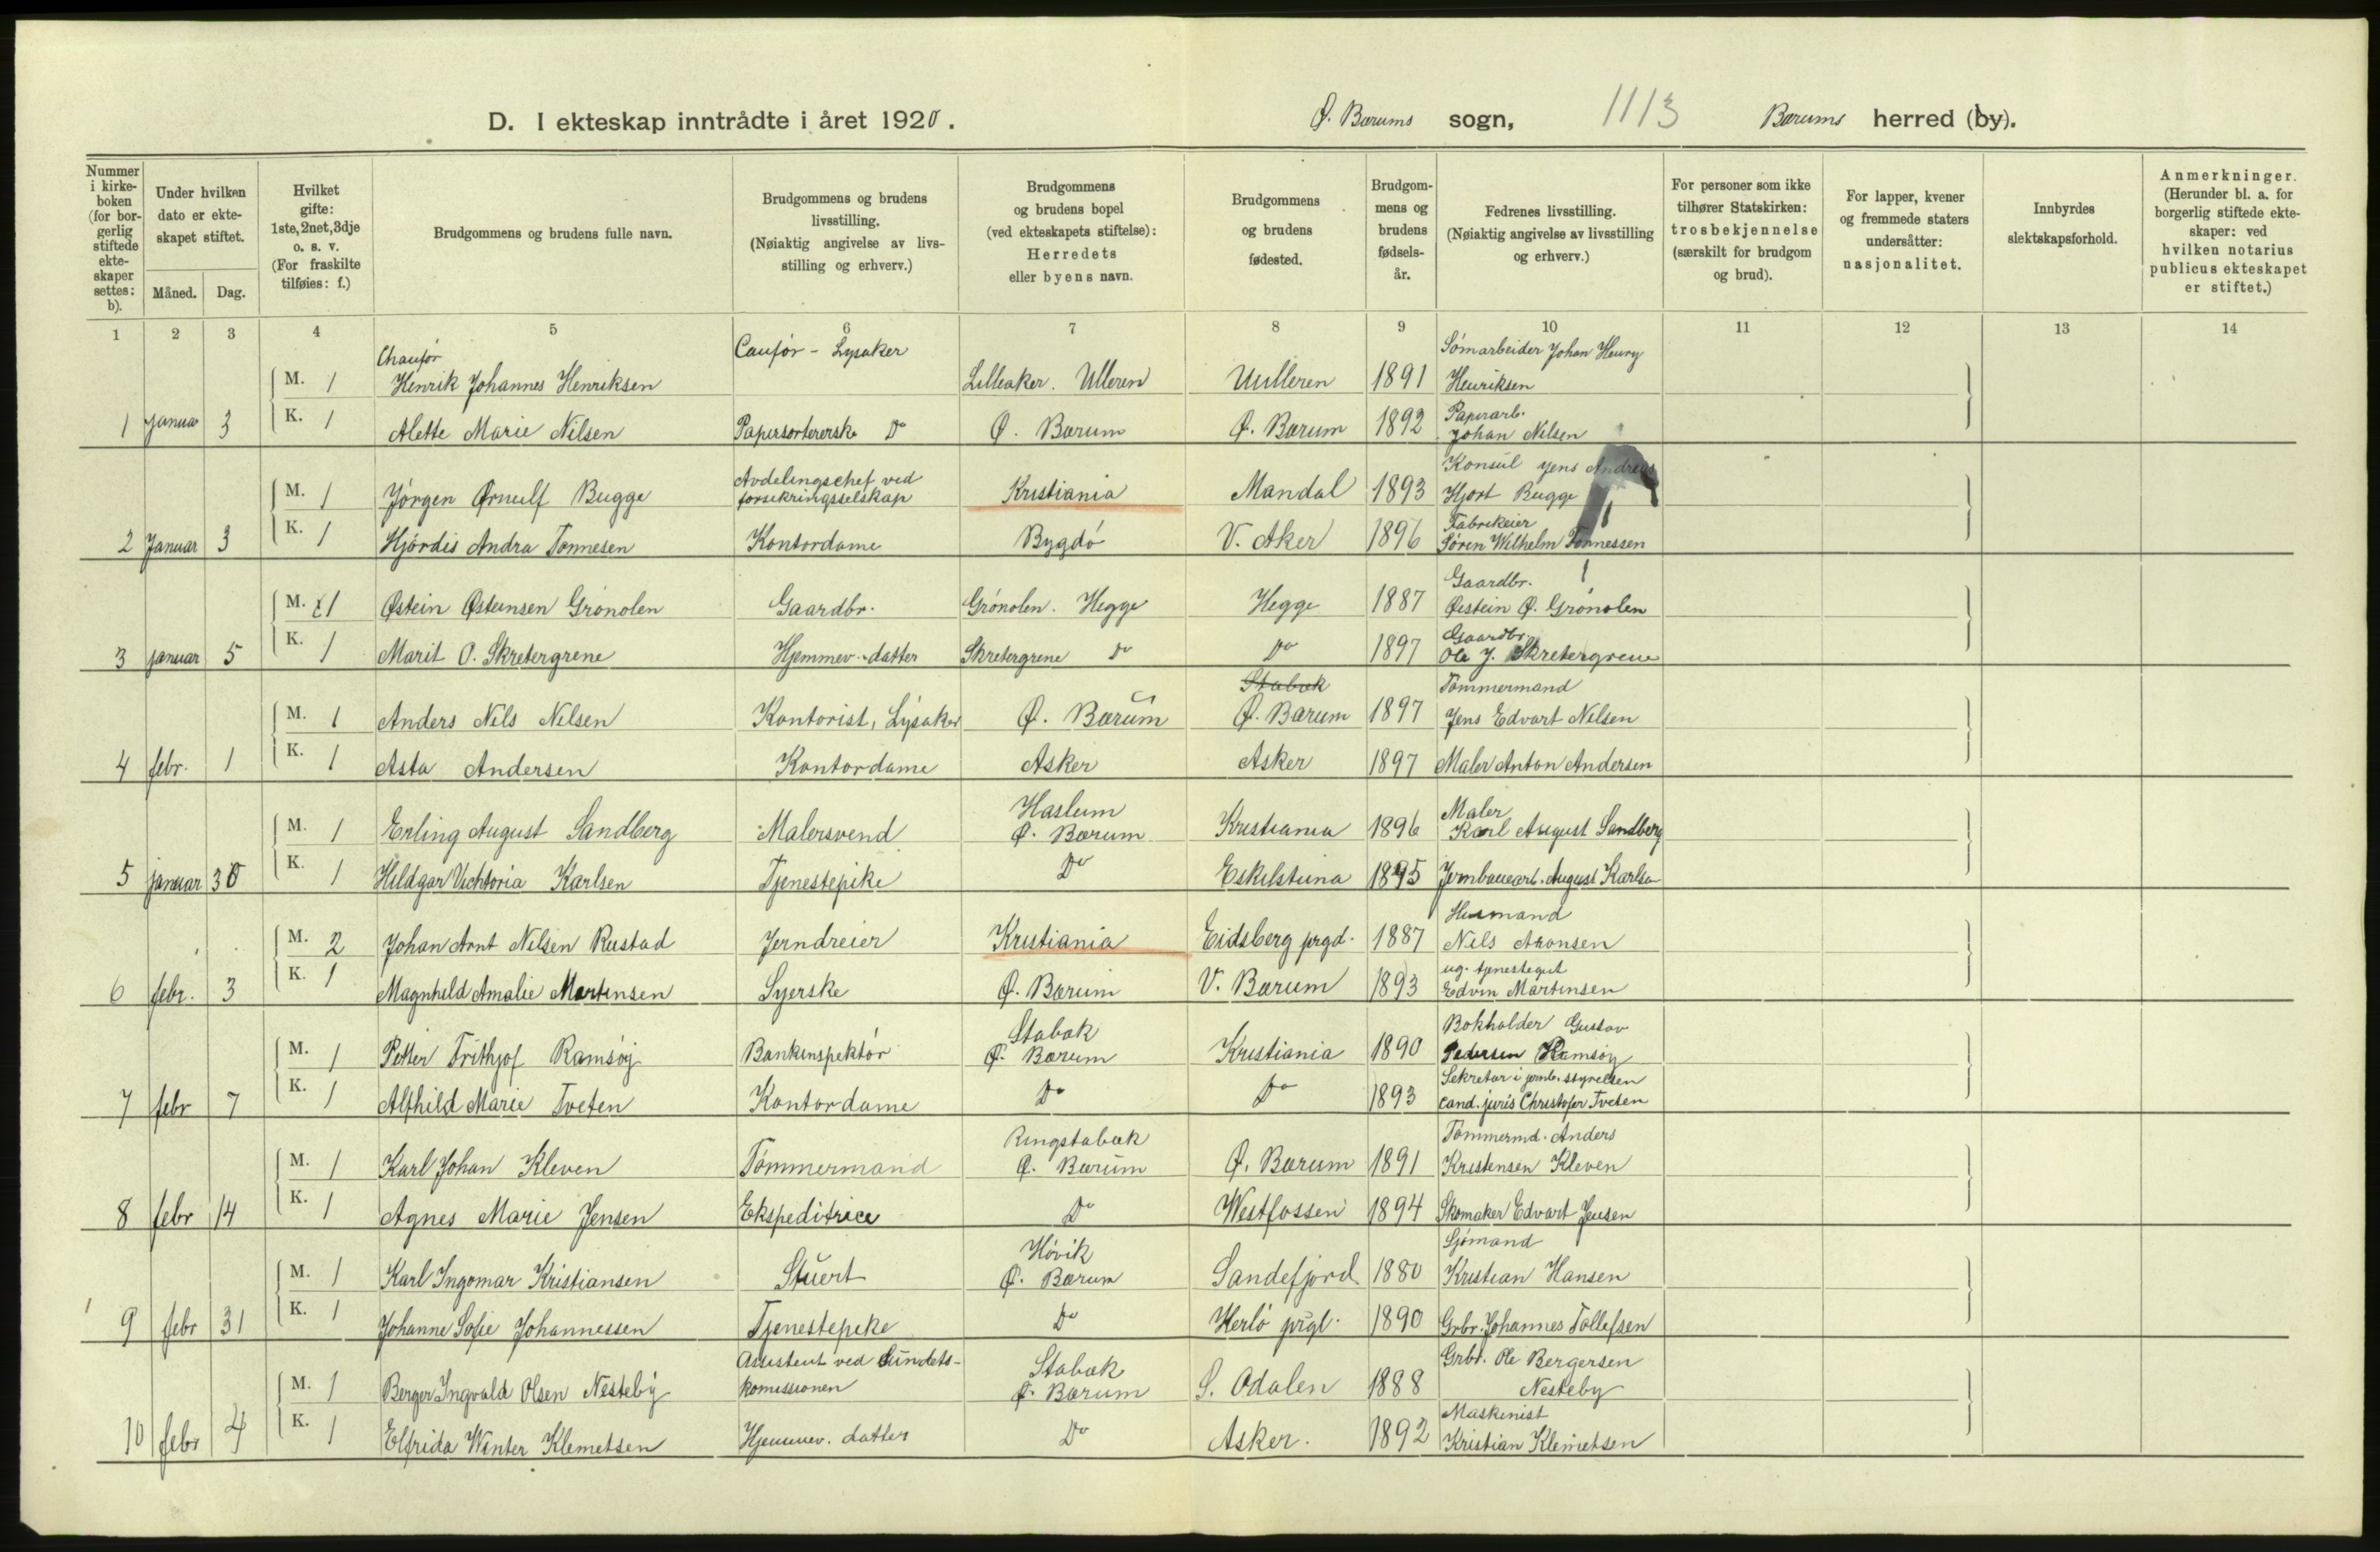 D. I ekteskap inntrådte i året 1920.
Ø. Bærums sogn, 1113 Bærums herred (by).
Nummer i kirke-boken (for bor-gerlig stiftede ekte-skaper settes: b).
Under hvilken dato er ekte-skapet stiftet.
Måned. Dag.
Hvilket gifte: 1ste, 2net, 3dje o. s. v. (For fraskilte tilføies: f.)
Brudgommens og brudens fulle navn.
Brudgommens og brudens livsstilling. (Nøiaktig angivelse av livs-stilling og erhverv.)
Brudgommens og brudens bopel (ved ekteskapets stiftelse): Herredets eller byens navn.
Brudgommens og brudens fødested.
Brudgom-mens og brudens fødsels-år.
Fedrenes livsstilling. (Nøiaktig angivelse av livsstilling og erhverv.)
For personer som ikke tilhører Statskirken: trosbekjennelse (særskilt for brudgom og brud).
For lapper, kvener og fremmede staters undersåtter: nasjonalitet.
Innbyrdes slektskapsforhold.
Anmerkninger. (Herunder bl. a. for borgerlig stiftede ekte-skaper: ved hvilken notarius publicus ekteskapet er stiftet.)
1 2 3 4 5 6 7 8 9 10 11 12 13 14
Chaufør Caufør - Lysaker Sømarbeider Johan Henry
M. 1 Henrik Johannes Henriksen Lilleaker. Ulleren Uulleren 1891 Henriksen
Paperarb.
1 Januar 3 K. 1 Alette Marie Nilsen Papersortererske Do Ø. Bærum Ø. Bærum 1892 Johan Nilsen
Avdelingschef ved Konsul Jens Andreas
M. 1 Jørgen Ørnulf Bugge forsekringsselskap Kristiania Mandal 1893 Hjort Bugge
Fabrikeier
2 Januar 3 K. 1 Hjørdis Andra Tønnesen Kontordame Bygdø V. Aker 1896 Søren Wilhelm Tønnessen
Gaardbr.
M. 1 Østein Østensen Grønolen Gaardbr. Grønolen. Hegge Hegge 1887 Østein Ø. Grønolen
Gaardbr
3 januar 5 K. 1 Marit O. Skretergrene Hjemmev. datter Skretergrene Do Do 1897 Ole J. Skretergrene
Stabæk Tømmermand
M. 1 Anders Nils Nilsen Kontorist, Lysaker Ø. Bærum Ø. Bærum 1897 Jens Edvart Nilsen
4 febr. 1 K. 1 Asta Andersen Kontordame Asker Asker 1897 Maler Anton Andersen
Haslum Maler
M. 1 Erling August Sandberg Malersvend Ø. Bærum Kristiania 1896 Karl August Sandberg
5 januar 30 K. 1 Hildgar Vichtoria Karlsen Tjenestepike Do Eskilstuna 1895 Jernbanearb. August Karlsen
Husmand
M. 2 Johan Arnt Nilsen Rustad Jerndreier Kristiania Eidsberg prgd. 1887 Nils Aronsen
ug. tjenestegut
6 febr. 3 K. 1 Magnhild Amalie Martinsen Syerske Ø. Bærum V. Bærum 1893 Edvin Martinsen
Stabæk Bokholder Gustav
M. 1 Petter Frithjof Ramsøy Bankinspektør Ø. Bærum Kristiania 1890 Pedersen Ramsøy
Sekretær i jernb. styrelsen
7 febr 7 K. 1 Alfhild Marie Tveten Kontordame Do Do 1893 cand. juris Christofer Tveten
Ringstabæk Tømmermd. Anders
M. 1 Karl Johan Kleven Tømmermand Ø. Bærum Ø. Bærum 1891 Kristensen Kleven
8 febr 14 K. 1 Agnes Marie Jensen Ekspeditrice Do Westfossen 1894 Skomaker Edvart Jensen
Høvik Sjømand
M. 1 Karl Ingomar Kristiansen Stuert Ø. Bærum Sandefjord 1880 Kristian Hansen
9 febr 31 K. 1 Johanne Sofie Johannessen Tjenestepike Do Herlø prgl. 1890 Grbr. Johannes Tollefsen
Assistent ved Sundets- Stabæk Grbr. Ole Bergersen
M. 1 Berger Ingvald Olsen Nesteby komissionen Ø. Bærum S. Odalen 1888 Nesteby
Maskinist
10 febr 4 K. 1 Elfrida Winter Klemetsen Hjemmev. datter Do Asker. 1892 Kristian Klemetsen